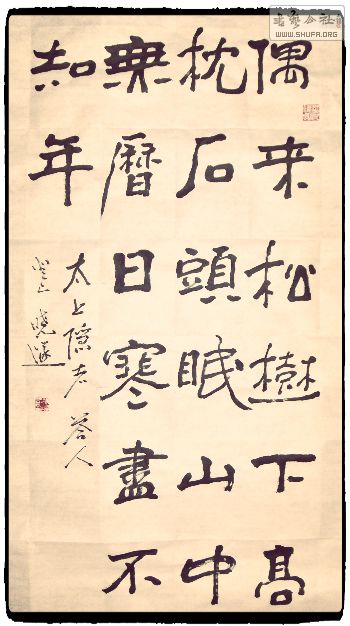 偶来松樹下高
枕石頭眠山中
無曆日寒盡不
知年
太上隐者答人
晓遂
WWW.SHUFA.ORG